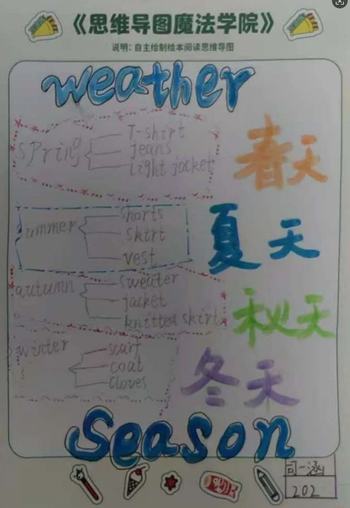 《思维导图魔法学院》
说明:自主绘制绘本阅读思维导图
weather
spring
T-shirt
jeans
light jacket
春天
ummer
shorts
skirt
vest
夏天
autumn
sweater
jacket
knitted skirt
秋天
winter
scarf
coat
Cloves
冬天
Season
司一涵
202